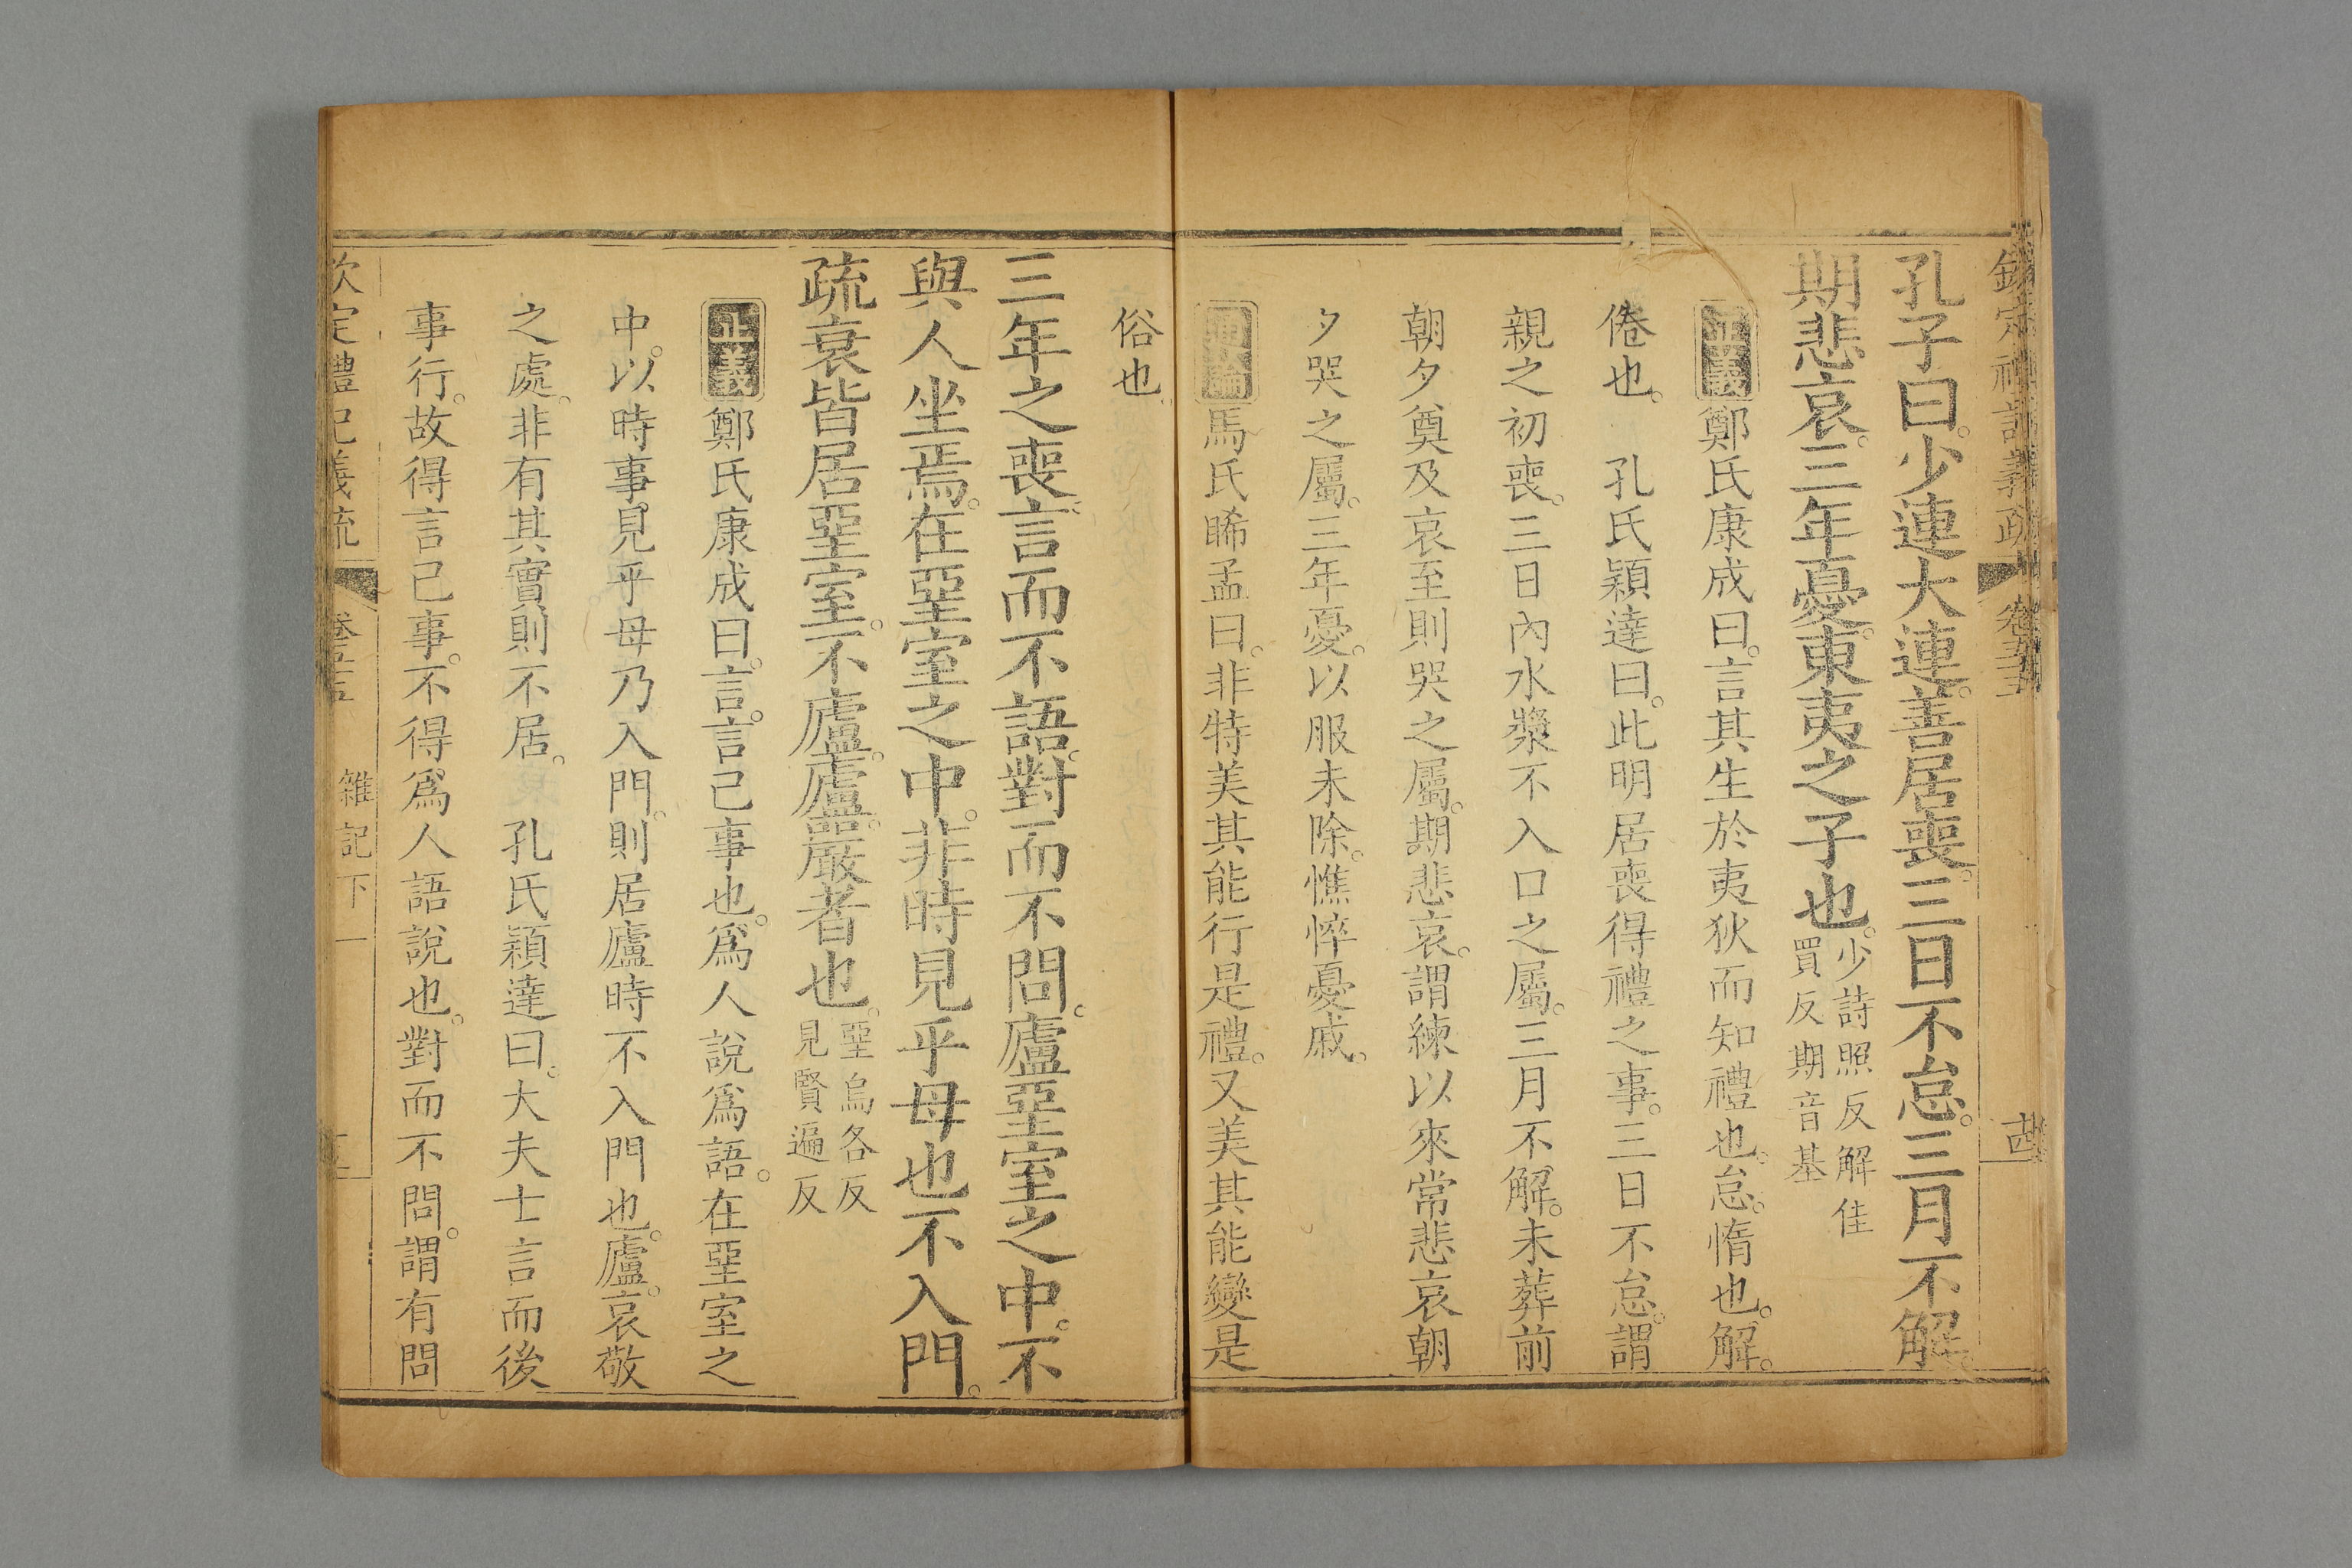 欽定禮記義疏 卷五十五 十四
孔子曰。少連大連。善居喪。三日不怠。三月不解。
期悲哀。三年憂。東夷之子也。少詩照反解佳
買反期音基
正義鄭氏康成曰。言其生於夷狄而知禮也。怠。惰也。解。
倦也。 孔氏穎達曰。此明居喪得禮之事。三日不怠。謂
親之初喪。三日內水漿不入口之屬。三月不解。未葬前
朝夕奠及哀至則哭之屬。期悲哀。謂練以來常悲哀朝
夕哭之屬。三年憂。以服未除。憔悴憂戚。
通論馬氏睎孟曰。非特美其能行是禮。又美其能變是
俗也
三年之喪。言而不語。對而不問。廬堊室之中。不
與人坐焉。在堊室之中。非時見乎母也不入門。
疏衰皆居堊室。不廬。廬。嚴者也。堊烏各反
見賢遍反
正義鄭氏康成曰。言。言己事也。爲人說爲語。在堊室之
中。以時事見乎母乃入門。則居廬時不入門也。廬。哀敬
之處。非有其實則不居。 孔氏穎達曰。大夫士言而後
事行。故得言己事。不得爲人語說也。對而不問。謂有問
欽定禮記義疏 雜記下一